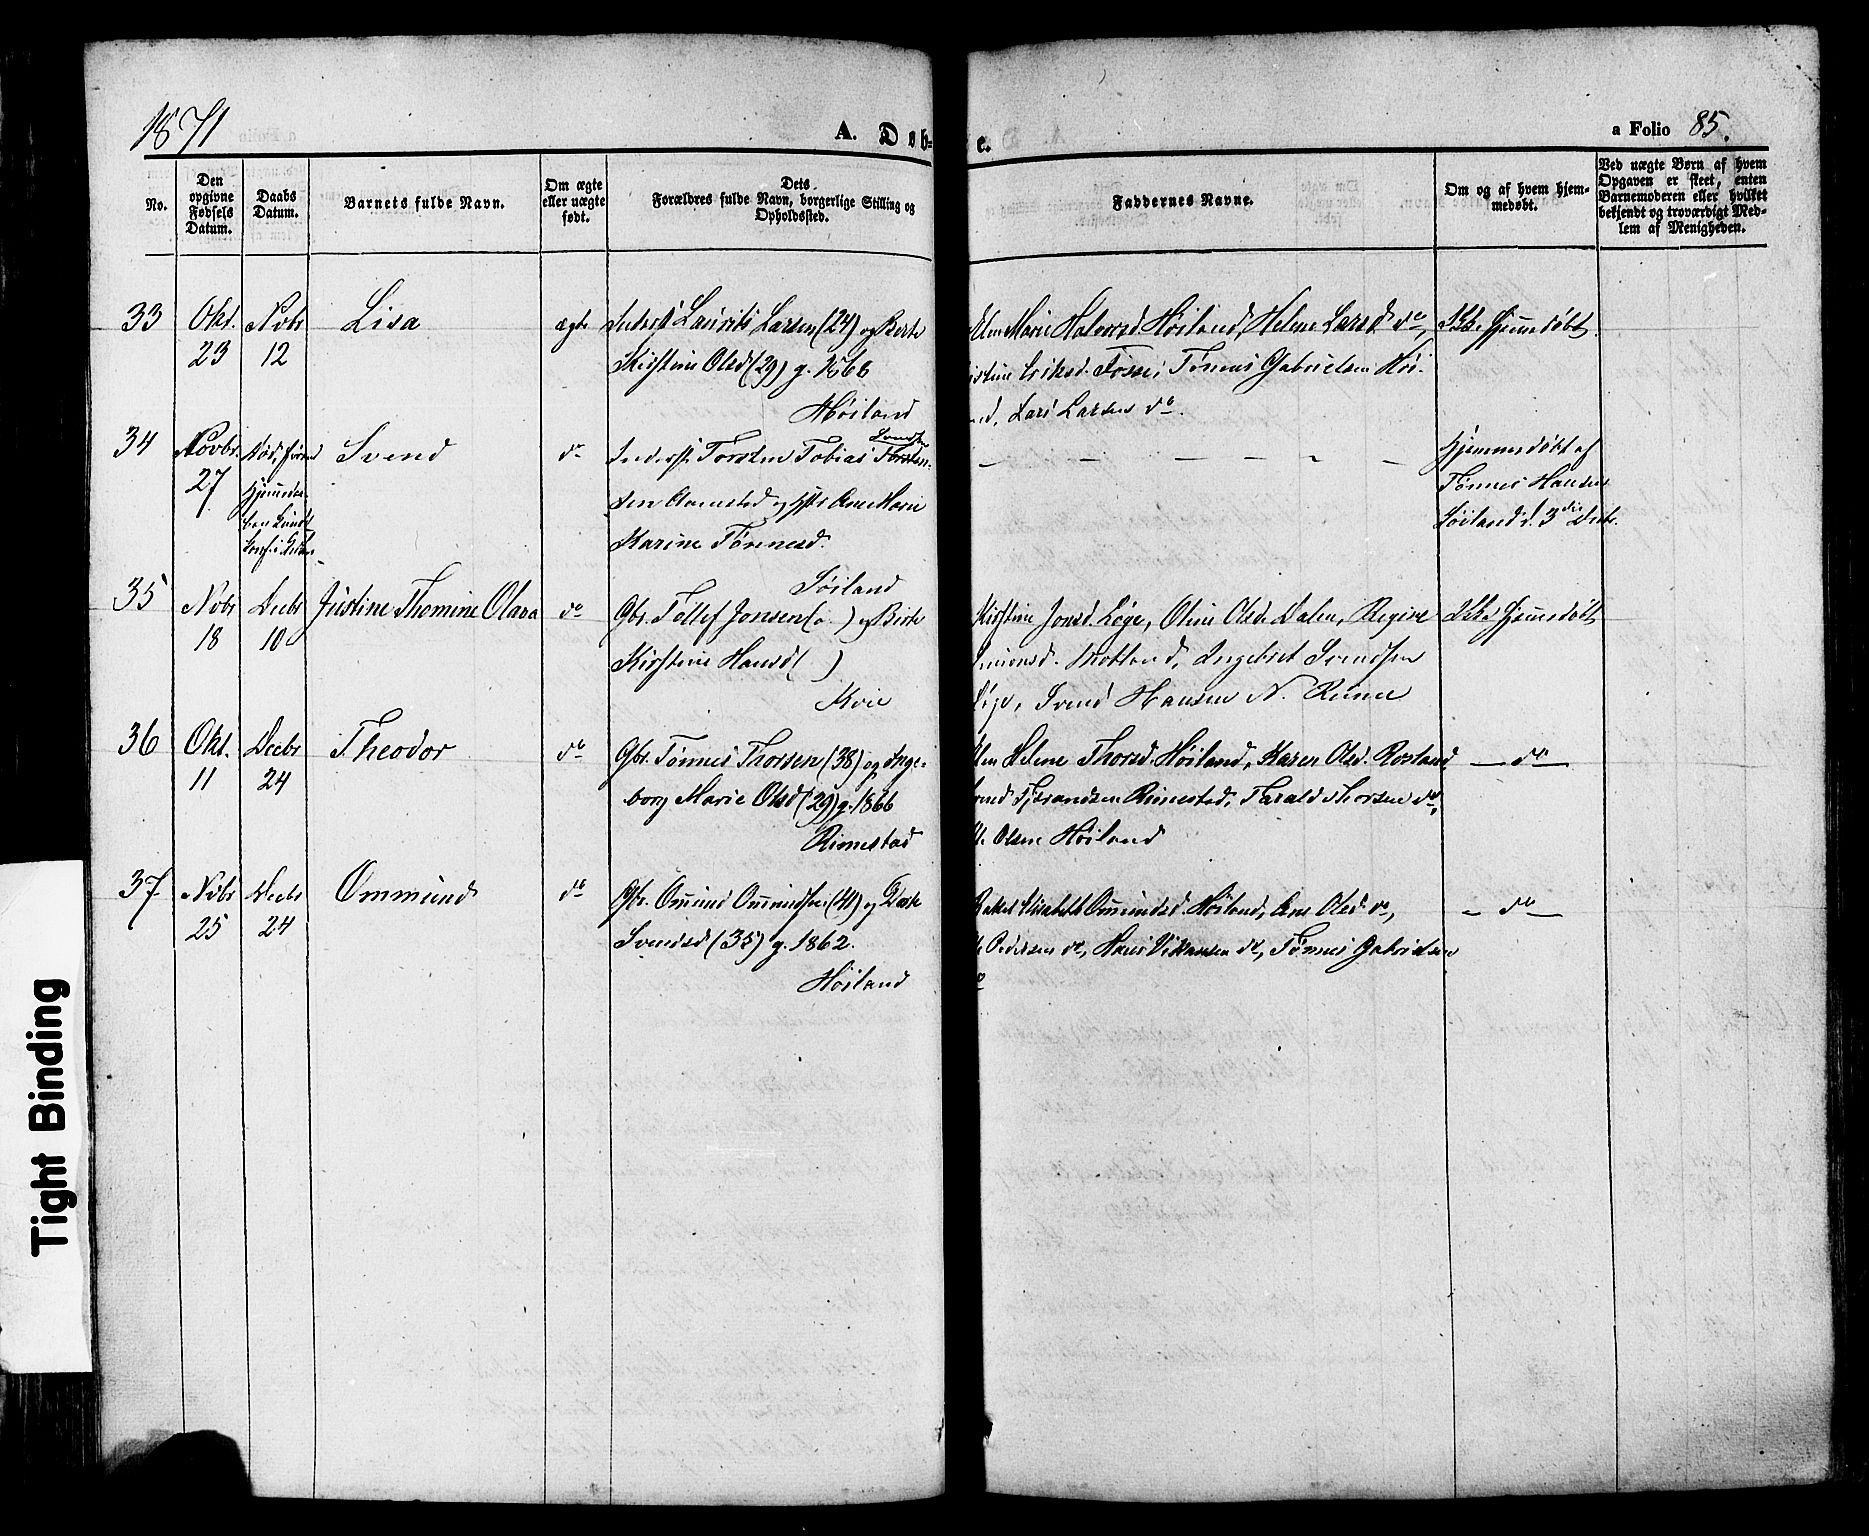 1871
A. Døb=
e.
a Folio 85.
No.
Den opgivne Fødsels Datum.
Daabs Datum.
Barnets fulde Navn.
Om ægte eller uægte født.
Dets Forældres fulde Navn, borgerlige Stilling og Opholdssted.
Faddernes Navne.
Om og af hvem hjemmedøbt.
Ved uægte Børn af hvem Opgaven er skeet, enten Barnemoderen eller hvilket bekjendt og troværdigt Medlem af Menigheden.
33 Okt. Novbr Lisa ægte Inderst Laurits Larsen (24) og Berte Marie Halvorsd. Høiland, Helene Larsd. do, Ikke hjemmedøbt.
23 12 Kirstine Olsd (29) g. 1866 Eriksd. Fosse; Tønnes Gabrielsen Høi-
Høiland Lars Larsen do.
34 Novbr. Svend do Inderst Torsten Tobias Svendsen Hjemmedøbt af
27 og Ane Marie Tønnes Hansen
Karine Tønnesd. Søiland d. 3die Decbr.
Søiland
35 Nvbr Decbr Justine Thomine Olava do Gbr. Tollef Jonsen ( ) og Berte Kirstine Jonsd. Løge, Oline Olsd. Dalen, Regine Ikke hjemmedøbt
18 10 Kirstine Hansd ( ) Motland, Ingebret Svendsen
Kvie Svend Hansen N. Rime
36 Okt. Decbr Theodor do Gbr. Tønnes Thorsen (38) og Inge- Helene Thorsd. Høiland, Karen Olsd. Rosland — do —
11 24 borg Marie Olsd (29) g. 1866 Tjerandsen Rimestad, Tarald Thorsen do,
Rimestad Olsen Høiland
37 Nvbr Decbr Ommund do Gbr. Ommund Ommundsen (44) og Rakel Elisabeth Ommundsd. Høiland, Ane Olsd. do, — do —
25 24 Svendsd (35) g. 1862. Pedersen do, Hans do, Tønnes Gabrielsen
Høiland do
Tight Binding